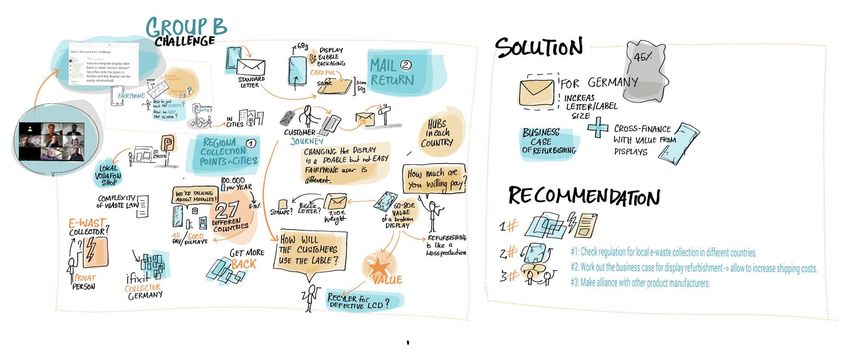 GROUP B
CHALLENGE
FAIRPHONE
STANDARD
LETTER
>60g
DISPLAY
BUBBLE
PACKAGING
CAREFUL
MAIL ②
RETURN
IN
CITIES
CUSTOMER
JOURNEY
HUBS
IN EACH
COUNTRY
REGIONAL
COLLECTION
POINTS IN CITIES ①
CHANGING THE DISPLAY
IS A DOABLE BUT NOT EASY
FAIRPHONE USER IS
DIFFERENT.
LOCAL
VODAFON
SHOP
COMPLEXITY
OF WASTE LAW
WE'RE TALKING
ABOUT MODULES!
100.000
PER YEAR
27
DIFFERENT
COUNTRIES
15
DAY/
5000
DISPLAYS
HOW MUCH ARE
YOU WILLING PAY?
STAMPS?
BIGGER
LETTER?
WEIGHT
60-80€
VALUE
OF A BROKEN
DISPLAY
REFURBISHING
IS LIKE A
MASSPRODUCTION
E-WAST
COLLECTOR?
PRIVAT
PERSON
ifixit
COLLECTOR
GERMANY
GET MORE
BACK
HOW WILL
THE CUSTOMERS
USE THE LABLE?
VALUE
RECYLER FOR
DEFECTIVE LCD?
SOLUTION
45%
FOR GERMANY
INCREAS
LETTER/LABEL
SIZE
BUSINESS
CASE
OF REFURBISHING
+
CROSS-FINANCE
WITH VALUE FROM
DISPLAYS
RECOMMENDATION
1#
2#
3#
#1: Check regulation for local e-waste collection in different countries.
#2: Work out the business case for display refurbishment -> allow to increase shipping costs.
#3: Make alliance with other product manufacturers.